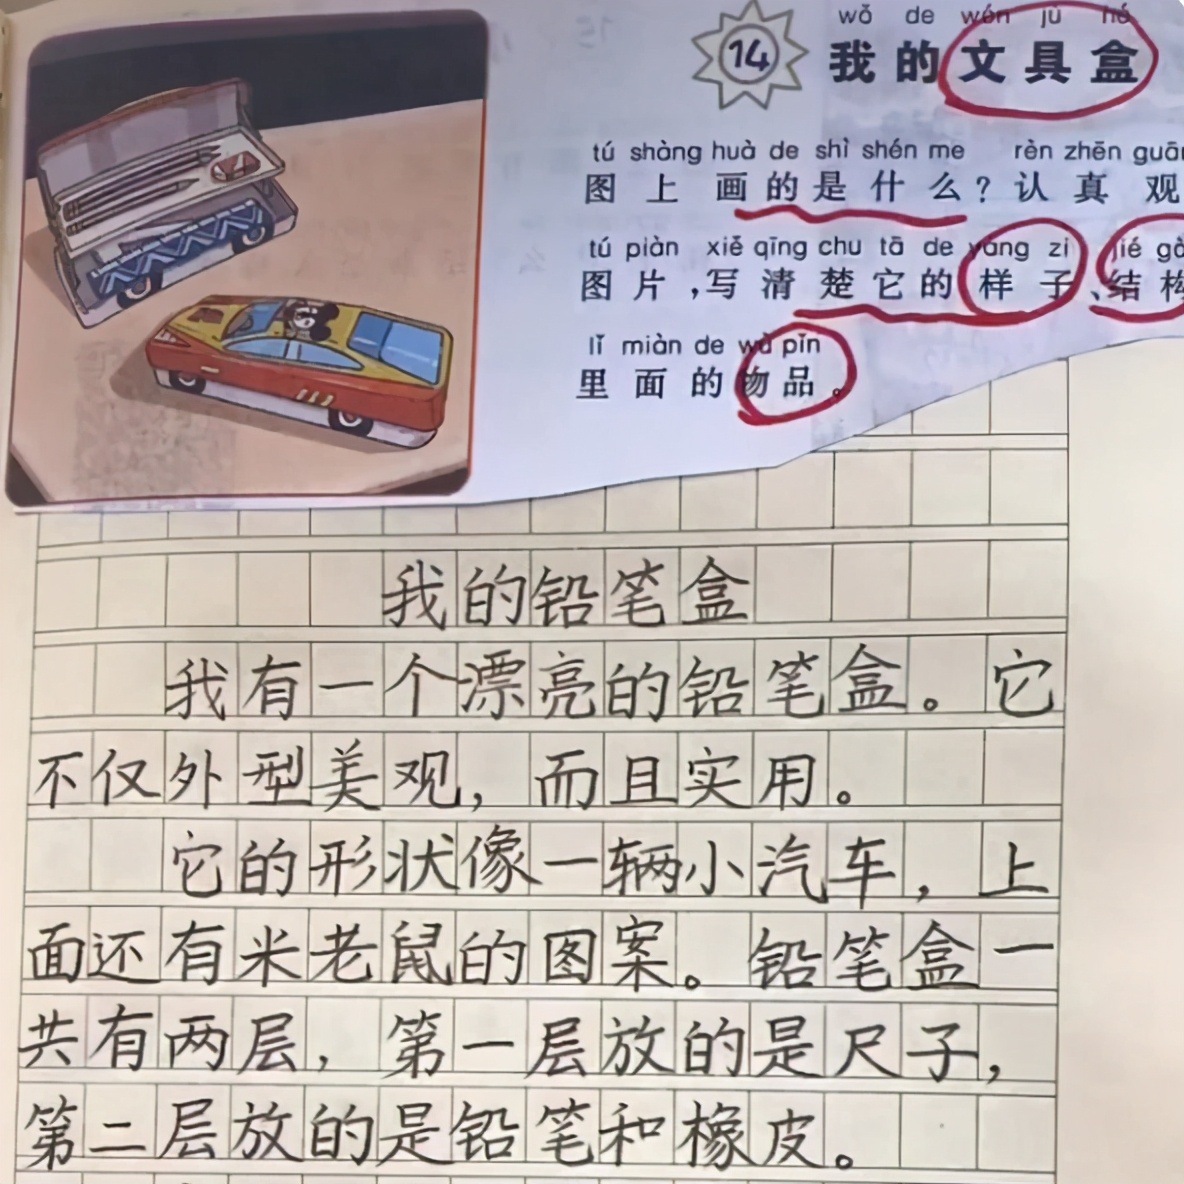 14
wǒ de wén jù hé
我的文具盒
tú shàng huà de shì shén me rèn zhēn guān
图上画的是什么？认真观
tú piàn xiě qīng chu tā de yàng zi jié gòu
图片，写清楚它的样子、结构
lǐ miàn de wù pǐn
里面的物品。
我的铅笔盒
我有一个漂亮的铅笔盒。它
不仅外型美观，而且实用。
它的形状像一辆小汽车，上
面还有米老鼠的图案。铅笔盒一
共有两层，第一层放的是尺子，
第二层放的是铅笔和橡皮。